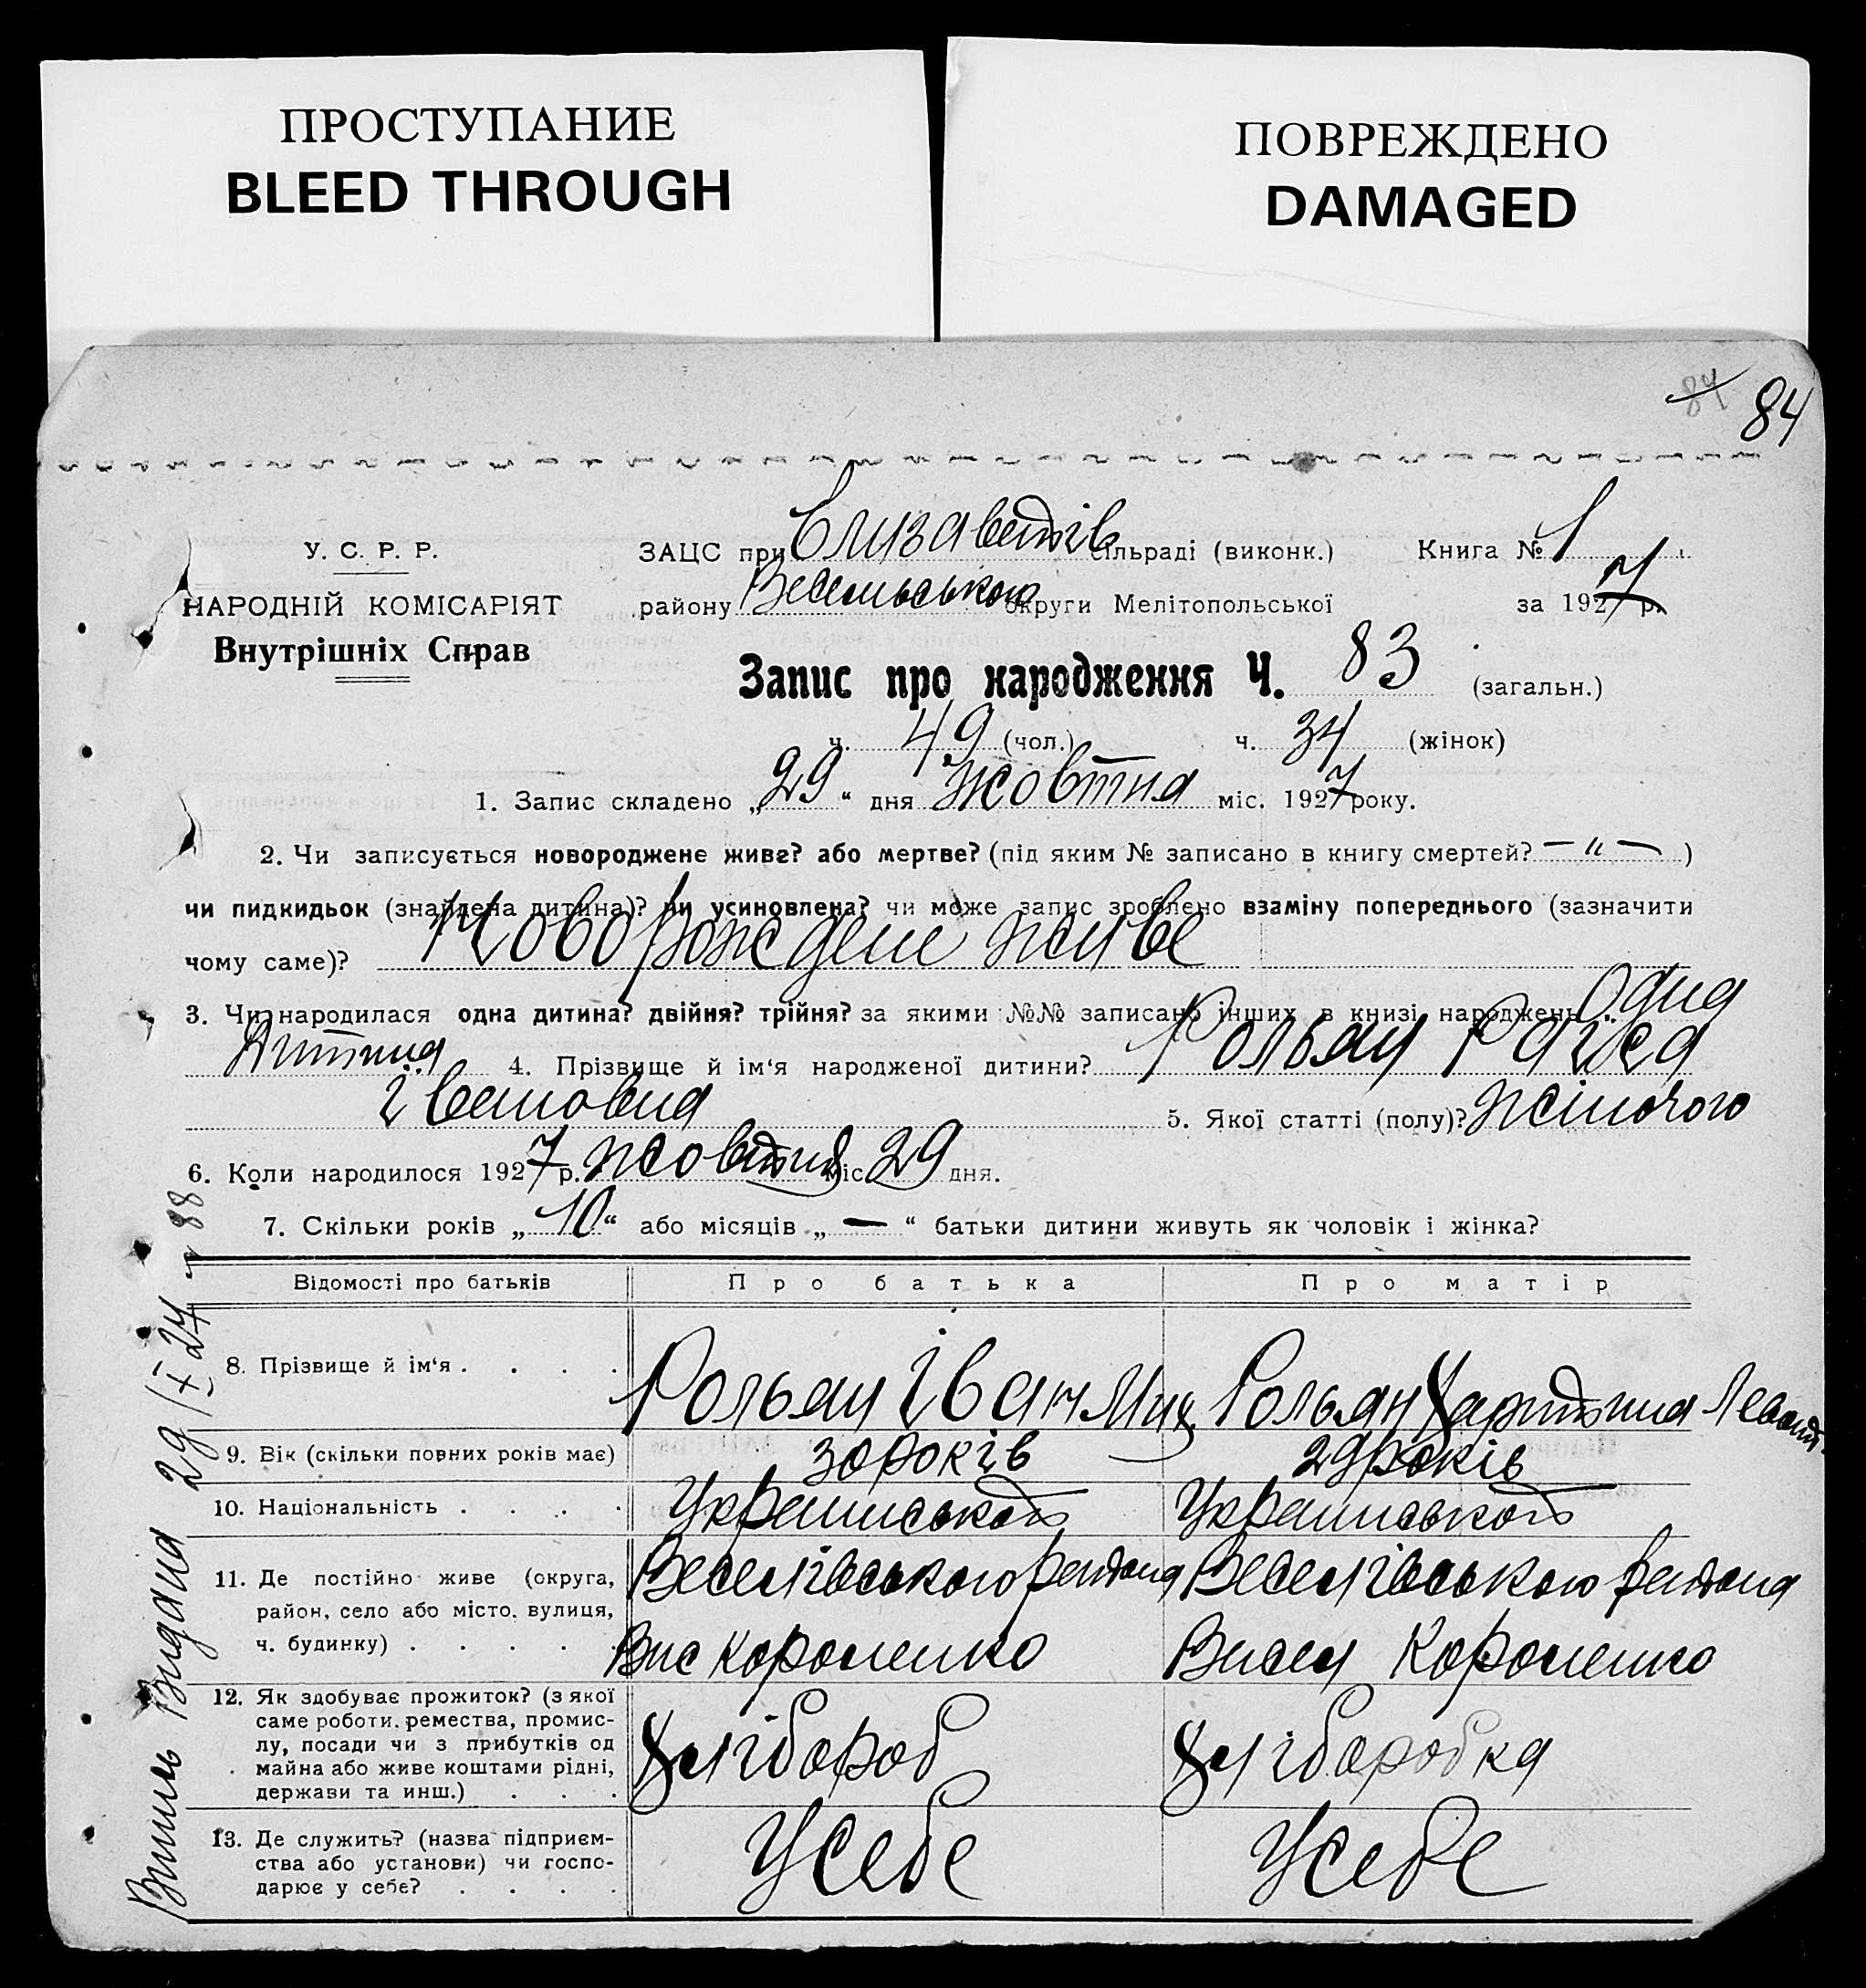 ПРОСТУПАНИЕ
BLEED THROUGH
ПОВРЕЖДЕНО
DAMAGED
84 84
У. С. Р. Р.
НАРОДНІЙ КОМІСАРІЯТ
Внутрішніх Справ
ЗАЦС при Єлизаветів сільраді (виконк.) Книга № 1
району Весельського округи Мелітопольської за 1927 р.
Запис про народження Ч. 83 (загальн.)
ч. 49 (чол.) ч. 34 (жінок)
1. Запис складено „29“ дня жовтня міс. 1927 року.
2. Чи записується новороджене живе? або мертве? (під яким № записано в книгу смертей? — „ — )
чи пидкидьок (знайдена дитина)? чи усиновлена? чи може запис зроблено взаміну попереднього (зазначити
чому саме)? Новорождене живе
3. Чи народилася одна дитина? двійня? трійня? за якими №№ записано інших в книзі народжень Одна
дитина 4. Прізвище й ім‘я народженої дитини? Рольян Раїса
Івановна 5. Якої статті (полу)? жіночого
6. Коли народилося 1927 р. жовтня міс 29 дня.
7. Скільки років „10“ або місяців „—“ батьки дитини живуть як чоловік і жінка?
Відомості про батьків Про батька Про матір
8. Прізвище й ім‘я . . . . Рольян Іван Мих Рольян Харитина Леонт
9. Вік (скільки повних років має) 30 років 29 років
10. Національність . . . . Украинська Украинська
11. Де постійно живе (округа,
район, село або місто, вулиця,
ч. будинку) . . . . .
Веселівського района Веселівського района
Вис Короленко Висел Короленко
12. Як здобуває прожиток? (з якої
саме роботи, ремества, промис-
лу, посади чи з прибутків од
майна або живе коштами рідні,
держави та инш.) . . .
Хлібороб Хліборобка
13. Де служить? (назва підприєм-
ства або установи) чи госпо-
дарює у себе? . . . .
У себе У себе
Видана 29/X 27 88